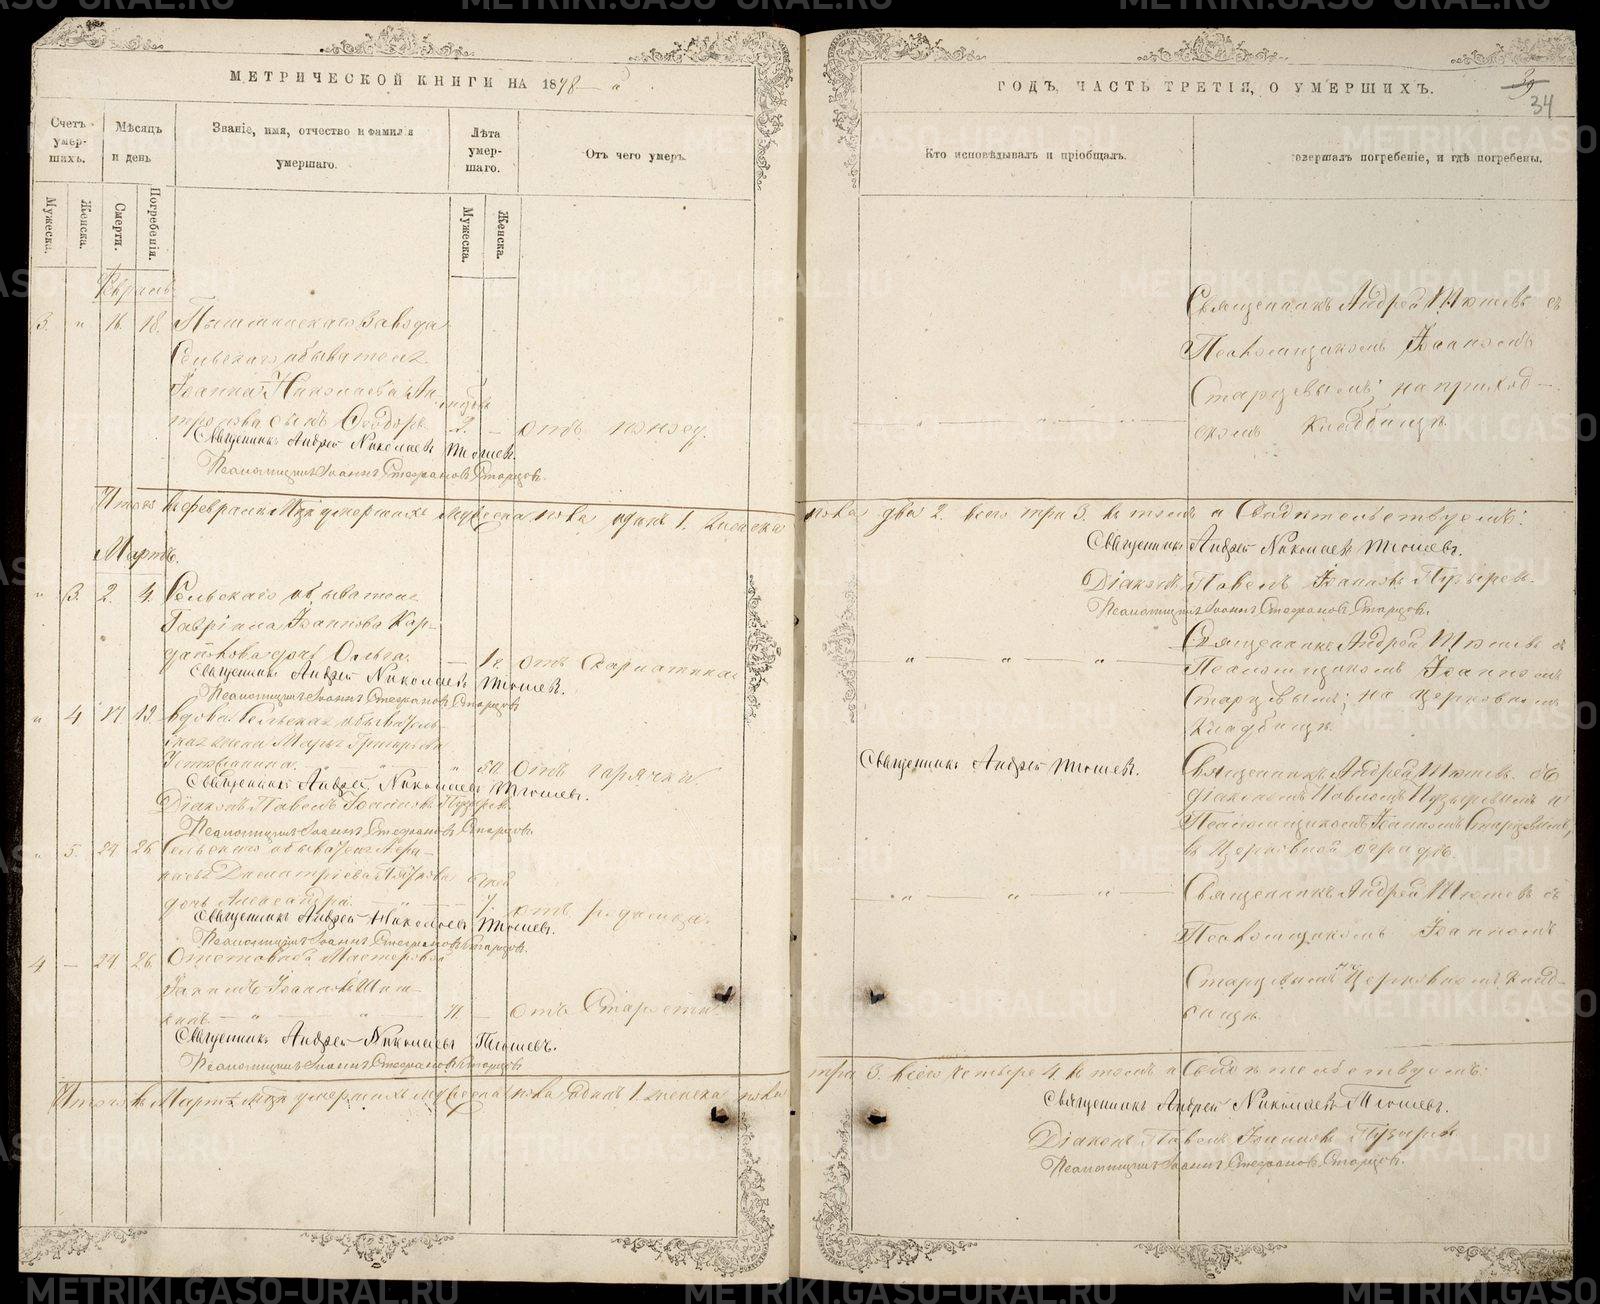 МЕТРИЧЕСКОЙ КНИГИ НА 1878
ГОДЪ, ЧАСТЬ ТРЕТІЯ, О УМЕРШИХЪ.
34
Счетъ умер-шихъ.
Мѣсяцъ и день
Званіе, имя, отчество и фамилія умершаго.
Лѣта умер-шаго.
Отъ чего умеръ.
Кто исповѣдывалъ и пріобщалъ.
совершалъ погребеніе, и гдѣ погребены.
Мужеска.
Женска.
Смерти.
Погребенія.
Мужеска.
Женска.
Февраль
3. " 16. 18. Пышминскаго завода
Сельскаго обывателя
Іоанна Николаева Ан-
сынъ Ѳеодоръ 2. — отъ поносу.
Священникъ Андрей Тюшевъ съ
Псаломщикомъ Іоанномъ
Старцевымъ; на приход-
скомъ кладбищѣ
Священникъ Андрей Николаевъ Тюшевъ.
Псаломщикъ Іоаннъ Стефановъ Старцовъ.
Итого въ февралѣ м-цѣ умершихъ мужеска пола одинъ 1. женска
пола два 2. всего три 3. въ томъ и Свидѣтельствуемъ:
Священникъ Андрей Николаевъ Тюшевъ.
Діаконъ Павелъ Іоанновъ Пузырев
Псаломщикъ Іоаннъ Стефановъ Старцовъ.
Мартъ.
" 3. 2. 4. Сельскаго обывателя
Гавріила Іоаннова Кар-
дочь Ольга. — 1 г. отъ Скарлатины
Священникъ Андрей Тюшевъ съ
Псаломщикомъ Іоанномъ
Старцевымъ; на церковномъ
кладбищѣ.
Священникъ Андрей Николаевъ Тюшевъ.
Псаломщикъ Іоаннъ Стефановъ Старцовъ
" 4. 17 19. вдова Сельская обыватель-
Марья Григорьева
Устьянина. " 50. отъ горячки
Священникъ Андрей Тюшевъ.
Священникъ Андрей Тюшевъ съ
діакономъ Павломъ Пузыревымъ и
Псаломщикомъ Іоанномъ Старцевымъ,
въ церковной оградѣ.
Священникъ Андрей Николаевъ Тюшевъ.
Діаконъ Павелъ Іоанновъ Пузырев
Псаломщикъ Іоаннъ Стефановъ Старцовъ.
" 5. 24 26. Сельскаго обывателя
Димитріева
дочь Александра. 7. отъ родимца.
Священникъ Андрей Тюшевъ съ
Псаломщикомъ Іоанномъ
Старцевымъ на церковномъ клад-
бищѣ.
Священникъ Андрей Николаевъ Тюшевъ.
Псаломщикъ Іоаннъ Стефановъ Старцовъ.
4 — 24 26. Отставной Мастеровой
Іакимъ Іоанновъ
71. — отъ Старости
Священникъ Андрей Николаевъ Тюшевъ.
Псаломщикъ Іоаннъ Стефановъ Старцовъ
Итого въ Мартѣ м-цѣ умершихъ мужеска пола одинъ 1. женска пола
три 3. всего четыре 4. въ томъ и Свидѣтельствуемъ:
Священникъ Андрей Николаевъ Тюшевъ.
Діаконъ Павелъ Іоанновъ Пузырев
Псаломщикъ Іоаннъ Стефановъ Старцовъ.
METRIKI.GASO-URAL.RU